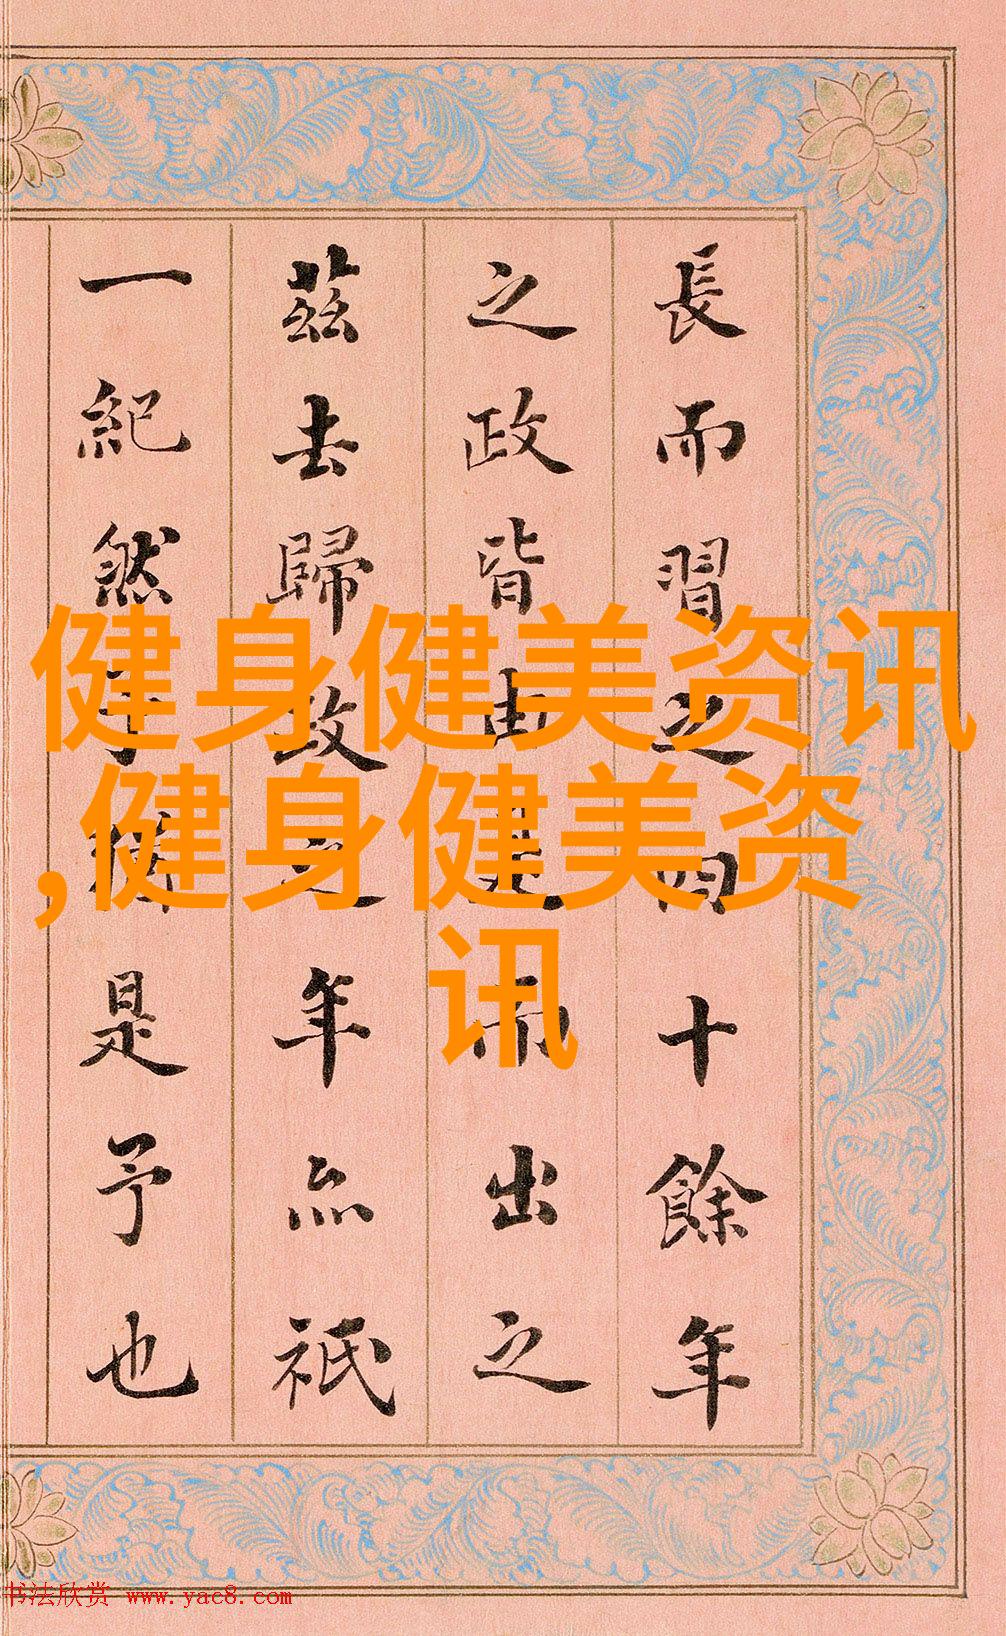 長而習之四十餘年
之政皆由是而出之
茲去歸政之年亦祇
一紀然予猶是予也
健身健美资讯
,健身健美资
讯
书法欣赏 www.yac8.com